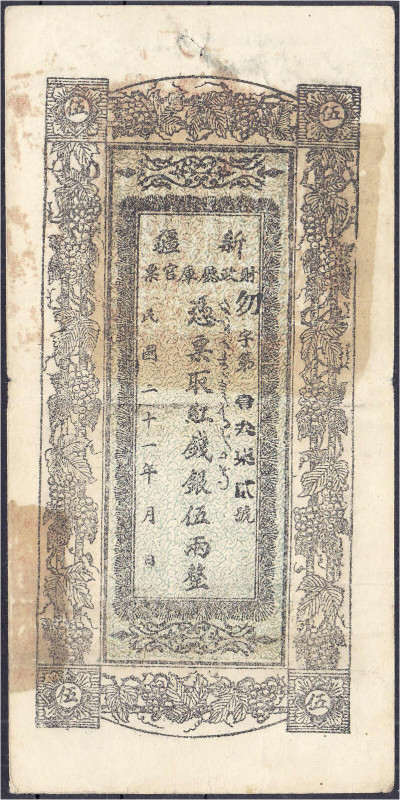 伍
伍
新疆
財政廳庫官票
勿字第
貳號
憑票取紅錢銀伍兩整
民國二十一年 月 日
伍
伍